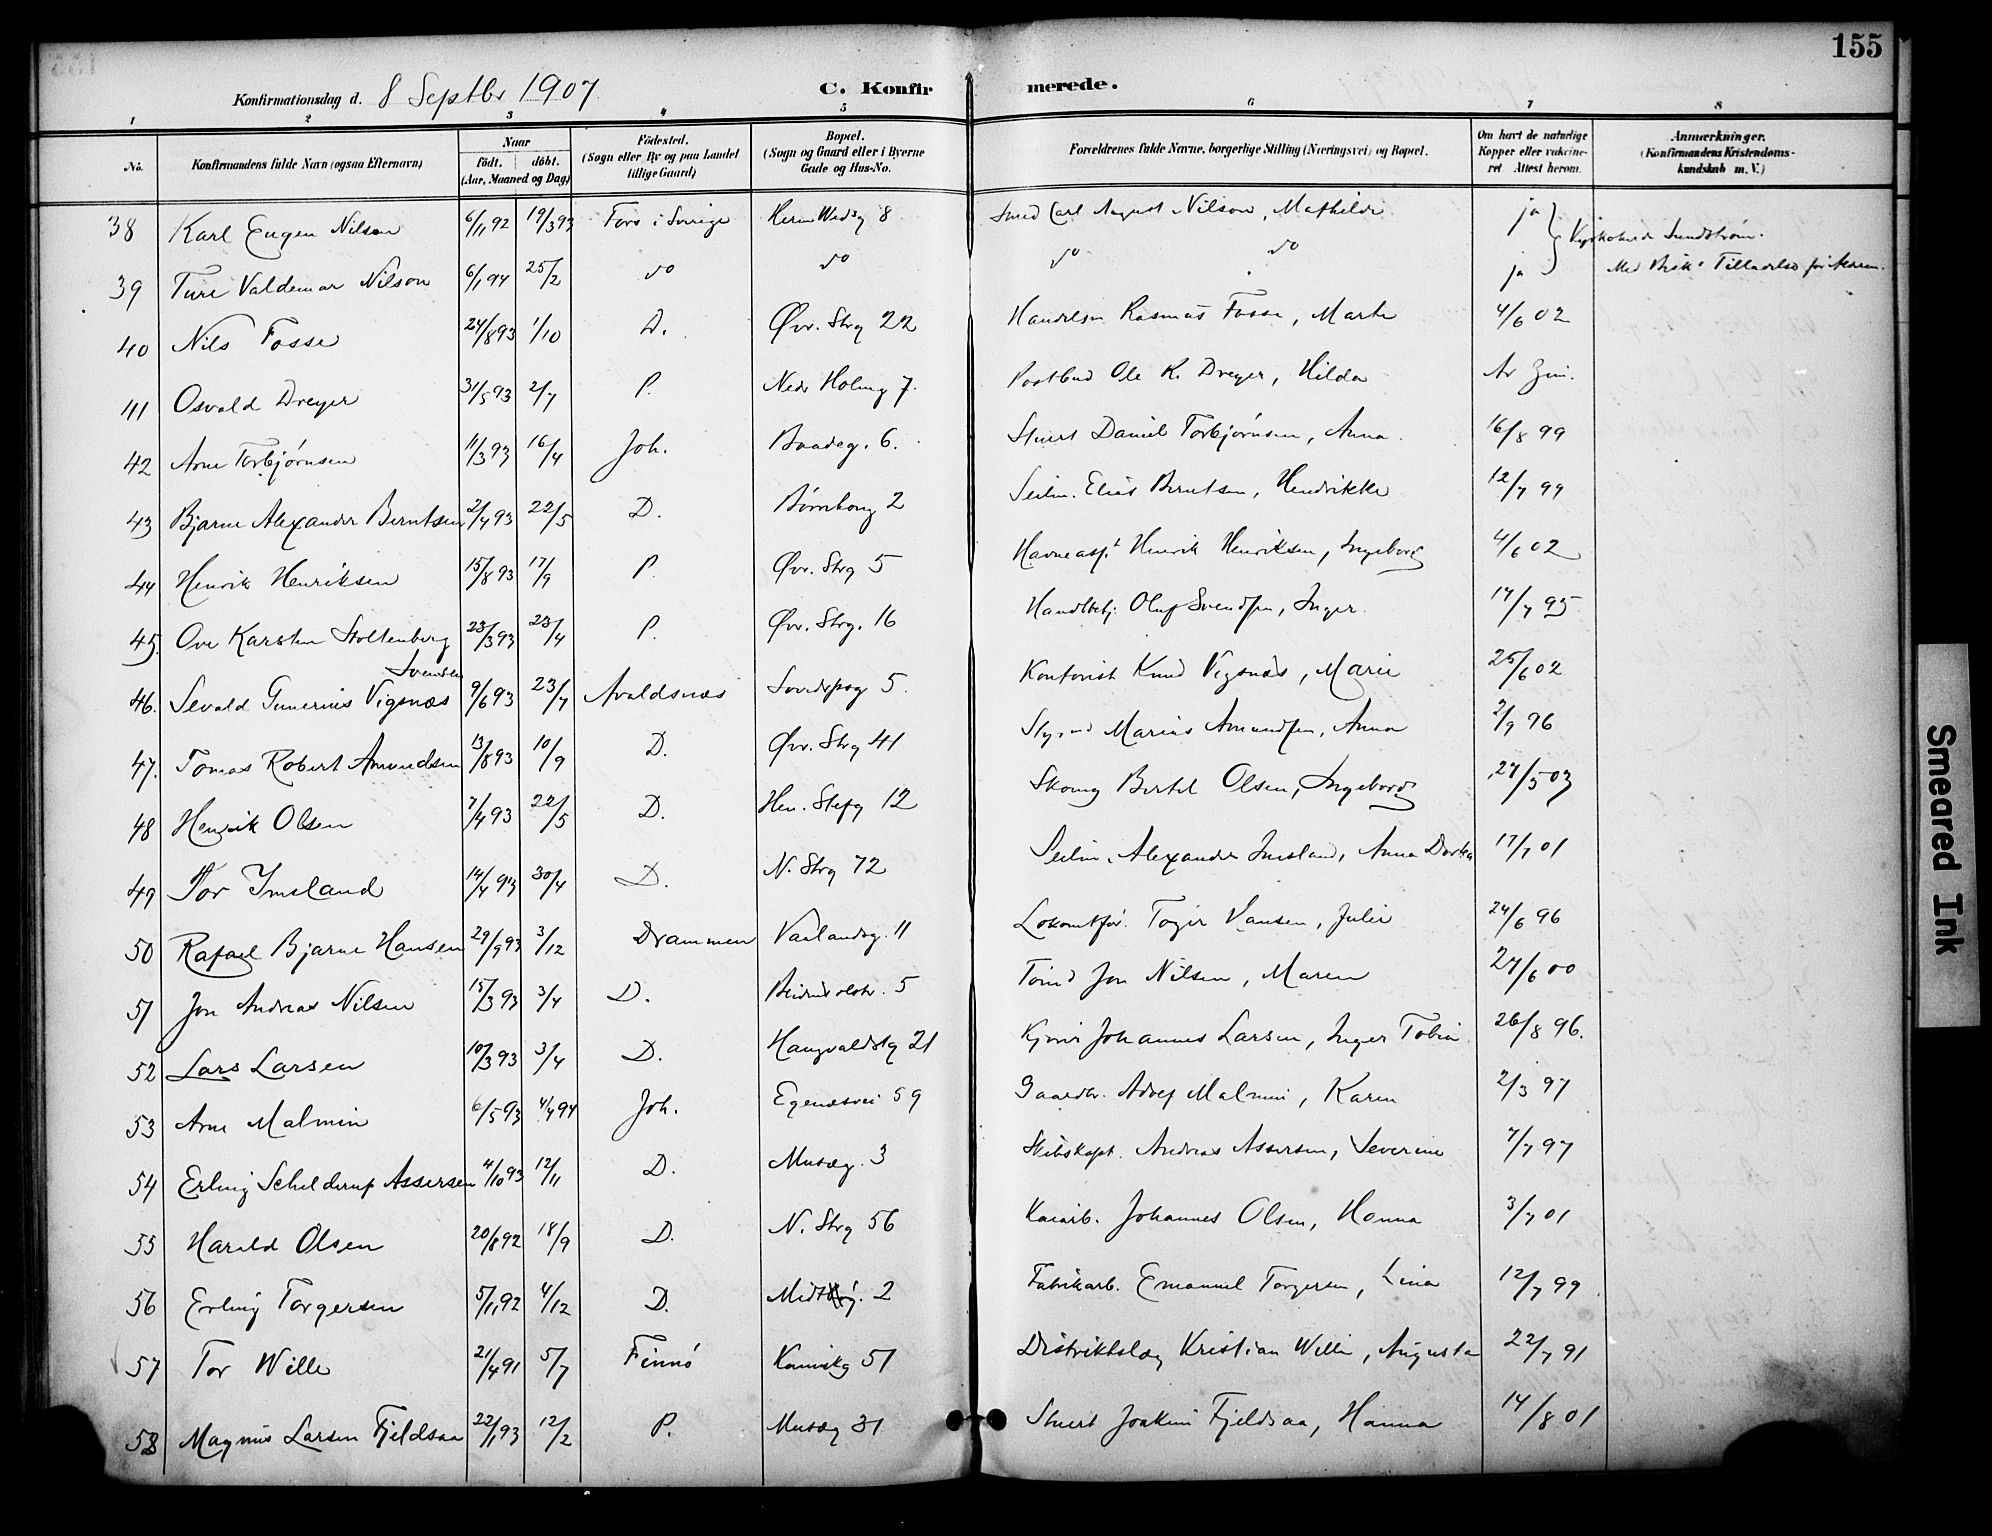 155
Konfirmationsdag d. 8 Septbr 1907 C. Konfirmerede.
1 2 3 4 5 6 7 8
No. Konfirmandens fulde Navn (ogsaa Efternavn) Naar født. døbt. (Aar, Maaned og Dag) Fødested. (Sogn eller By og paa Landet tillige Gaard) Bopæl. (Sogn og Gaard eller i Byerne Gade og Hus-No. Forældrenes fulde Navne, borgerlige Stilling (Næringsvei) og Bopæl. Om havt de naturlige Kopper eller vakcineret Attest herom. Anmærkninger. (Konfirmandens Kristendomskundskab m. V.)
38 Karl Eugen Nilson 6/11 92 19/3 93 Fors i Sverige Herm Wedsg 8 Smed Carl August Nilson, Mathilde ja
39 Ture Valdemar Nilson 6/1 94 25/2 do do do do ja Med Bisk. Tilladelse for Alderen.
40 Nils Fosse 24/8 93 1/10 D. Øvr. Strg 22 Handelsm Rasmus Fosse, Marte 4/6 02
41 Osvald Dreyer 31/5 93 2/7 P. Nedr Holmg 7. Postbud Ole K. Dreyer, Hilda
42 Arne Torbjørnsen 11/3 93 16/4 Joh. Baadeg. 6. Stuert Daniel Torbjørnsen, Anna. 16/8 99
43 Bjarne Alexander Berntsen 2/4 93 22/5 D. 2 Seilm. Elias Berntsen, Hendrikke 12/7 99
44 Henrik Henriksen 15/8 93 17/9 P. Øvr. Strg 5 Havneasst Henrik Henriksen, Ingeborg 4/6 02
45. Ove Karsten Stoltenberg Svendsen 23/3 93 23/4 P. Øvr. Strg. 16 Handlbetj. Oluf Svendsen, Inger. 17/7 95
46. Sevald Gunerius Vigsnæs 9/6 93 23/7 Avaldsnæs 5. Kontorist Knud Vigsnæs, Marie 25/6 02
47. Tomas Robert Amundsen 13/8 93 10/9 D. Øvr. Strg 41 Styrmd Marius Amundsen, Anna 2/9 96
48 Henrik Olsen 7/4 93 22/5 D. Hen. Stefg 12 Skomg Bertel Olsen, Ingeborg 27/5 03
49 Tor Imsland 14/4 93 30/4 D. N. Strg 72 Seilm. Alexander Imsland, Anna Dortea 17/7 01
50 Rafael Bjarne Hansen 29/9 93 3/12 Drammen Vaalandsg. 11 Lokomtfør. Toger Hansen, Julie 24/6 96
51 Jon Andreas Nilsen 15/3 93 3/4 D. 5 Tomd Jon Nilsen, Maren 27/6 00
52 Lars Larsen 10/3 93 3/4 D. Haugvaldstg 21 Johannes Larsen, Inger Tobia 26/8 96.
53 Arne Malmin 6/5 93 4/4 94 Joh. Egenesvei 59 Gaardbr. Malmin, Karen 2/3 97
54 Erling Schelderup Assersen 4/10 93 12/11 D. Musæg. 3 Skibskapt. Andreas Assersen, Severine 7/7 97
55 Harald Olsen 20/8 92 18/9 D. N. Strg 56 Johannes Olsen, Hanna 3/7 01
56 Erling Torgersen 5/11 92 4/12 D. 2 Fabrikarb. Emanuel Torgersen, Lina 12/7 99
57 Tor Wille 21/4 91 5/7 Finnø Kannikg 51 Distriktslæg Kristian Wille, Augusta 22/7 91
58 Magnus Larsen Fjeldsaa 22/1 93 12/2 P. Musæg 31 Stuert Joakim Fjeldsaa, Hanna 14/8 01
Smeared Ink